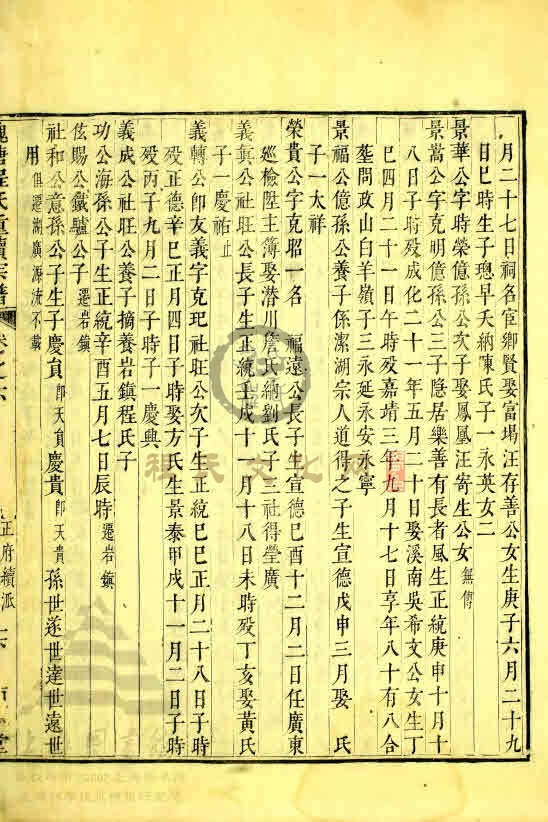 月二十七日祠名宦鄉賢娶富堨汪存善公女生庚子六月二十九
日巳時生子璁早夭納陳氏子一永英女二
景華公字時榮億孫公次子娶鳳凰汪寄生公女 無傳
景嵩公字克明億孫公三子隱居樂善有長者風生正統庚申十月十
八日子時歿成化二十一年五月二十日娶溪南吳希文公女生丁
巳四月二十一日午時歿嘉靖三年九月十七日享年八十有八合
塟問政山白羊嶺子三永延永安永寧
景福公億孫公養子係潔湖宗人道得之子生宣德戊申三月娶 氏
子一太祥
榮貴公字克昭一名 福遠公長子生宣德己酉十二月二日任廣東
巡檢陞主簿娶潛川詹氏納劉氏子三社得瑩廣
義箕公社旺公長子生正統壬戌十一月十八日未時歿丁亥娶黃氏
子一慶祐止
義轉公即友義字克玘社旺公次子生正統己巳正月二十八日子時
歿正德辛巳正月四日子時娶方氏生景泰甲戌十一月二日子時
歿丙子九月二日子時子一慶典
義成公社旺公養子摘養岩鎮程氏子
功公海孫公子生正統辛酉五月七日辰時 遷岩鎮
伭賜公鐵驢公子 遷岩鎮
社和公意孫公子生子慶員 即天貟 慶貴 即天貴 孫世遂世達世遠世
用 俱遷湖廣源流不載
程氏重續宗譜 卷之六 正府續派
程氏文化网